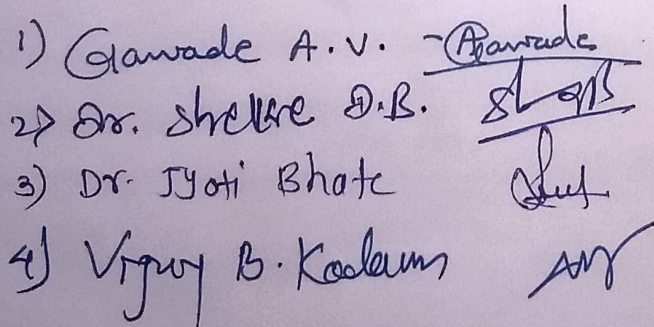 1) Gawade A.V. - Agawade
2) Dr. Shelke D.B.
3) Dr. Jyoti Bhate
4) B. Kadam